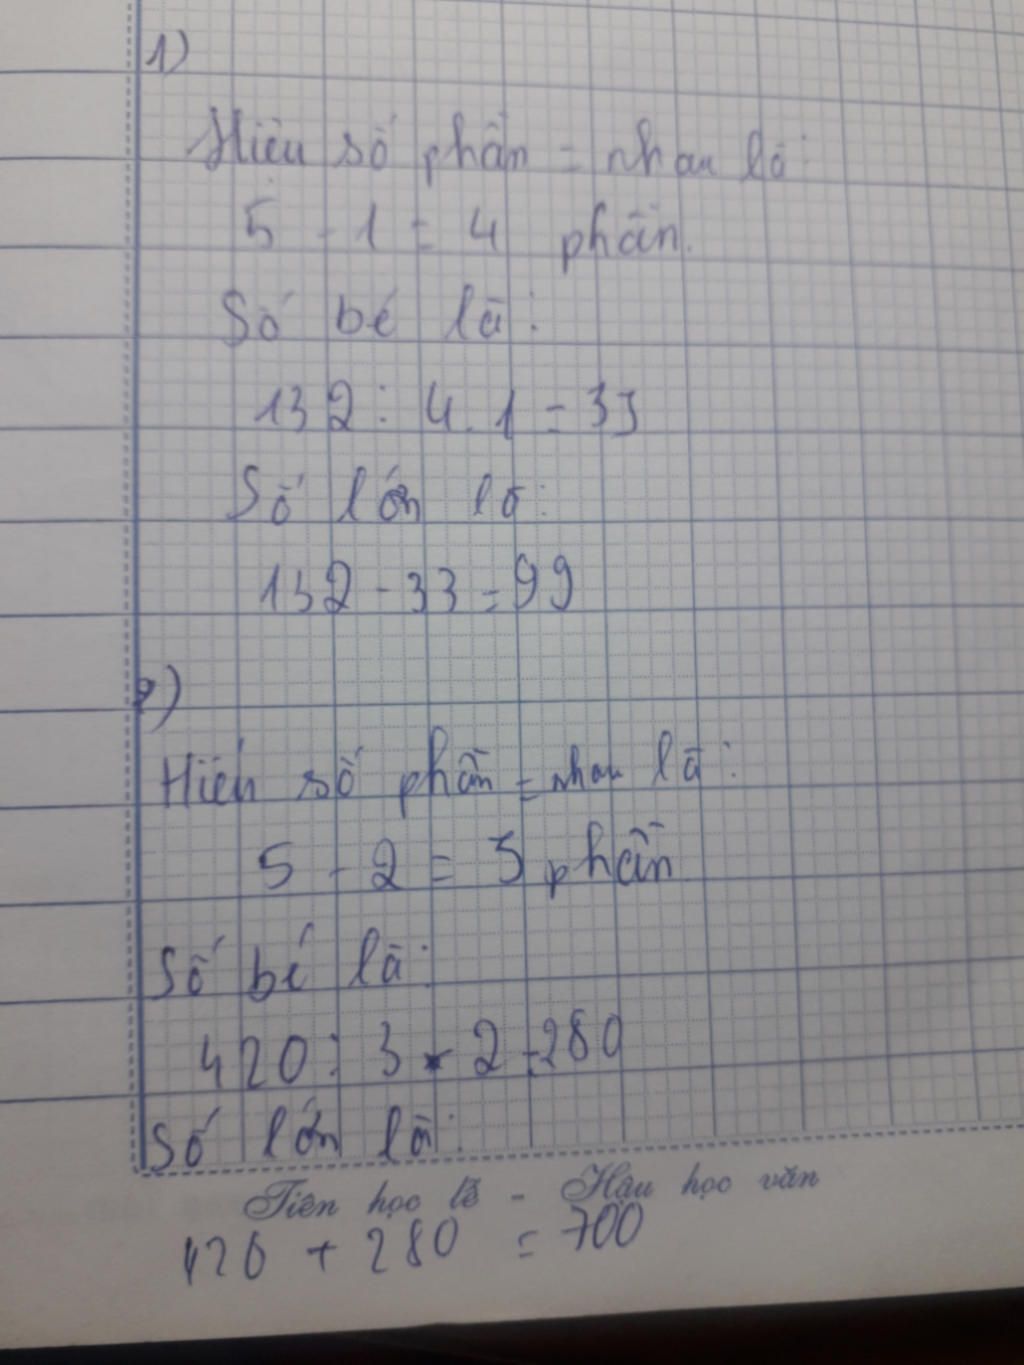 1)
Hiệu số phần = nhau là:
5 - 1 = 4 phần.
Số bé là:
132 : 4 . 1 = 33
Số lớn là:
132 - 33 = 99
2)
Hiệu số phần = nhau là:
5 - 2 = 3 phần
Số bé là:
420 : 3 . 2 = 280
Số lớn là:
Tiên học lễ - Hậu học văn
420 + 280 = 700